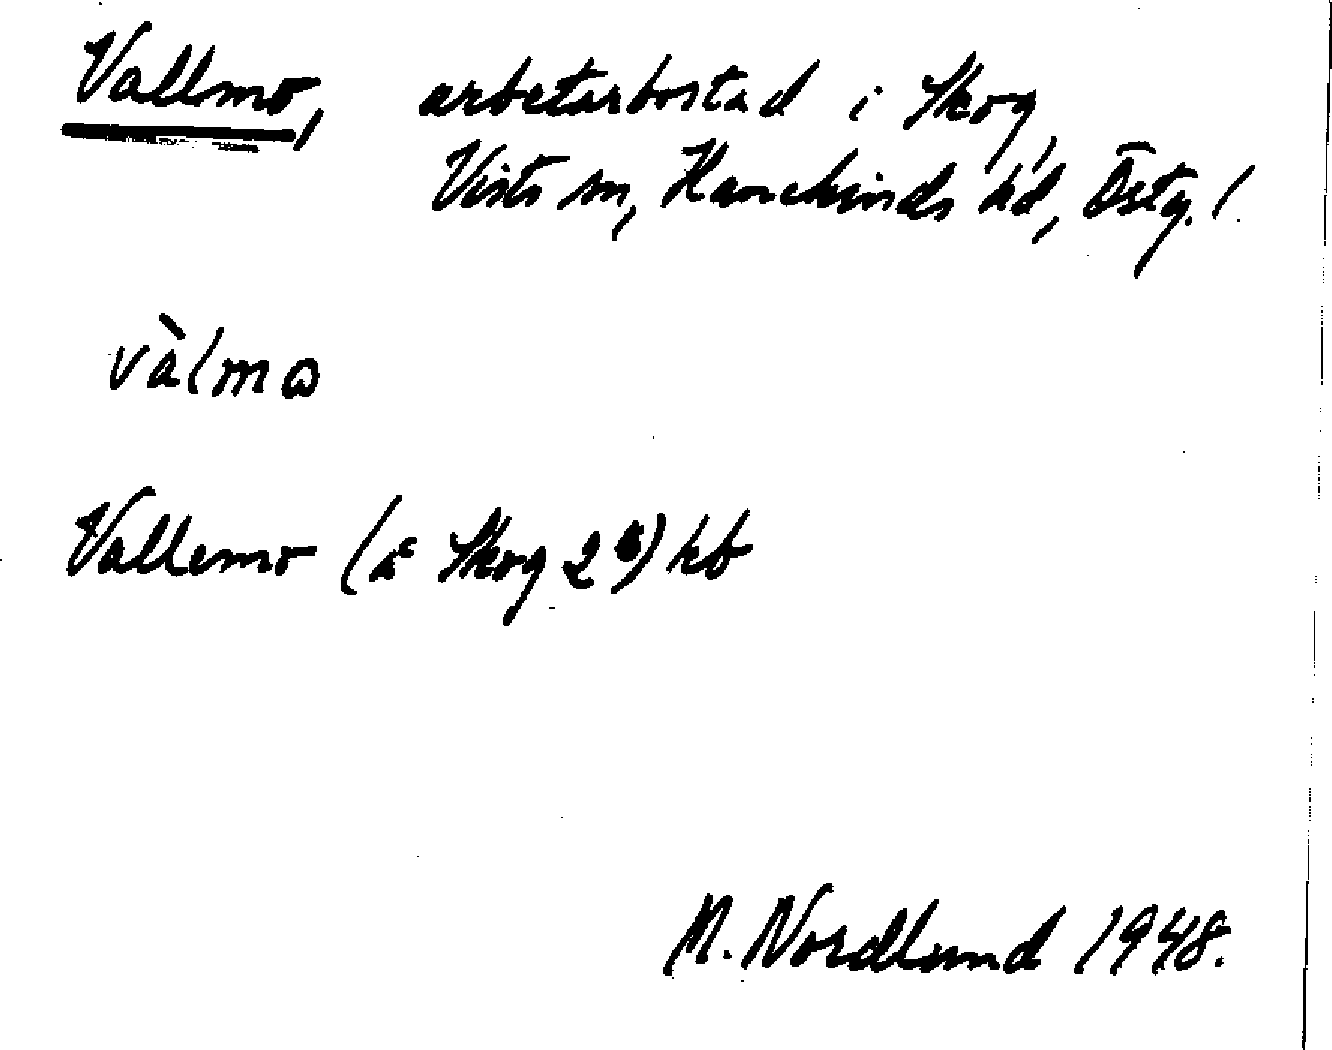 Vallmo, arbetarbostad i Skog,
Vists sn, Hanekinds hd, Östg. l.
vàlmω
Vallemo (å Skog 2) kb
M. Nordlund 1948.